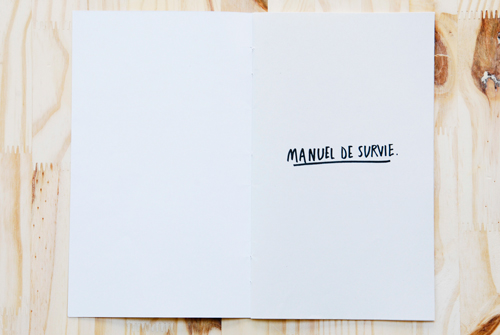 MANUEL DE SURVIE.